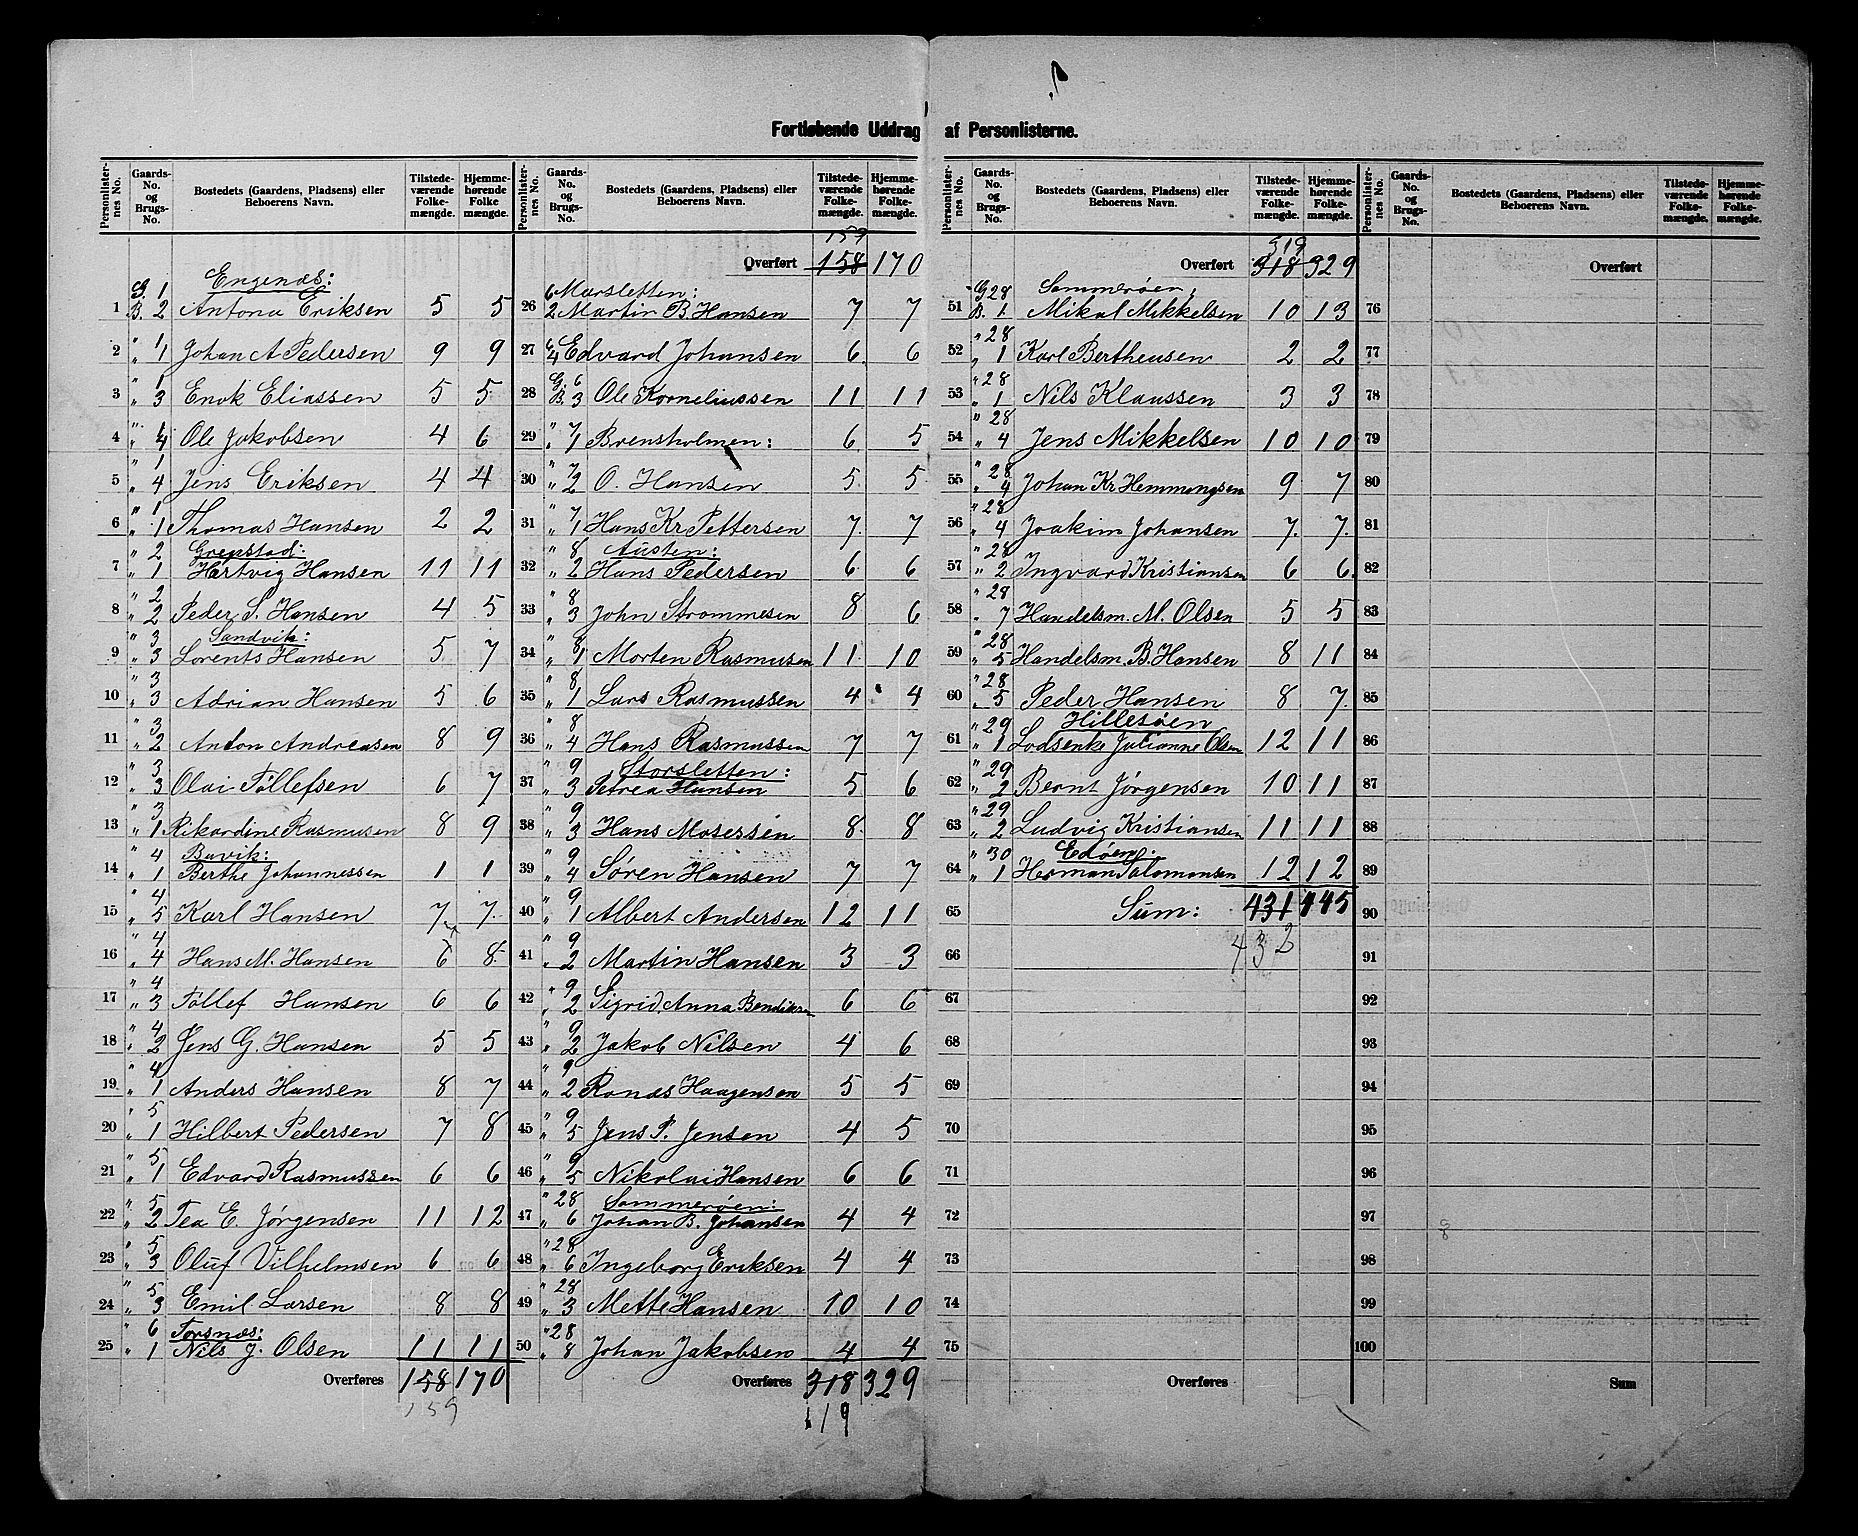 Fortløbende Uddrag af Personlisterne.
Personlisternes No. | Gaards-No. og Brugs-No. | Bostedets (Gaardens, Pladsens) eller Beboerens Navn. | Tilstedeværende Folkemængde. | Hjemmehørende Folkemængde.
Engenæs:
1 G. 1 B. 2 Antona Eriksen 5 5
2 " 1 " 1 Johan A Pedersen 9 9
3 " 1 " 3 Enok Eliassen 5 5
4 " 1 " 4 Ole Jakobsen 4 6
5 " 1 " 4 Jens Eriksen 4 4
6 " 1 " 1 Thomas Hansen 2 2
Grepstad:
7 " 2 " 1 Hertvig Hansen 11 11
8 " 2 " 2 Peder S. Hansen 4 5
Sandvik:
9 " 3 " 3 Lorents Hansen 5 7
10 " 3 " 3 Adrian Hansen 5 6
11 " 3 " 2 Anton Andreasen 8 9
12 " 3 " 3 Olai Tøllefsen 6 7
13 " 3 " 1 Rikardine Rasmusen 8 9
Buvik:
14 " 4 " 1 Berthe Johannessen 1 1
15 " 4 " 5 Karl Hansen 7 7
16 " 4 " 4 Hans M. Hansen 6 8
17 " 4 " 3 Tøllef Hansen 6 6
18 " 4 " 2 Jens G. Hansen 5 5
19 " 4 " 1 Anders Hansen 8 7
20 " 5 " 1 Hilbert Pedersen 7 8
21 " 5 " 1 Edvard Rasmussen 6 6
22 " 5 " 2 Tea E. Jørgensen 11 12
23 " 5 " 3 Oluf Vilhelmsen 6 6
24 " 5 " 3 Emil Larsen 8 8
Torsnæs:
25 " 6 " 1 Nils J. Olsen 11 11
Overføres 158 170
159
Personlisternes No. | Gaards-No. og Brugs-No. | Bostedets (Gaardens, Pladsens) eller Beboerens Navn. | Tilstedeværende Folkemængde. | Hjemmehørende Folkemængde.
159
Overført 158 170
Marsletten:
26 6 2 Martin B. Hansen 7 7
27 6 4 Edvard Johansen 6 6
28 G. 6 B. 3 Ole Korneliussen 11 11
29 " 7 " 1 Brensholmen: 6 5
30 " 7 " 2 O. Hansen 5 5
31 " 7 " 1 Hans Kr Pettersen 7 7
Austein:
32 " 8 " 2 Hans Pedersen 6 6
33 " 8 " 3 John Strommesen 8 6
34 " 8 " 1 Morten Rasmusen 11 10
35 " 8 " 1 Lars Rasmussen 4 4
36 " 8 " 4 Hans Rasmussen 7 7
Storsletten:
37 " 9 " 3 Petrea Hansen 5 6
38 " 9 " 3 Hans Mosessen 8 8
39 " 9 " 4 Søren Hansen 7 7
40 " 9 " 1 Albert Andersen 12 11
41 " 9 " 2 Martin Hansen 3 3
42 " 9 " 2 Sigrid Anna Bendiksen 6 6
43 " 9 " 2 Jakob Nilsen 4 6
44 " 9 " 2 Ronæs Haagensen 5 5
45 " 9 " 5 Jens P. Jensen 4 5
46 " 9 " 5 Nikolai Hansen 6 6
Sommerøen:
47 " 28 " 6 Johan B. Johansen 4 4
48 " 28 " 6 Ingeborg Eriksen 4 4
49 " 28 " 3 Mette Hansen 10 10
50 " 28 " 8 Johan Jakobsen 4 4
Overføres 318 329
319
Personlisternes No. | Gaards-No. og Brugs-No. | Bostedets (Gaardens, Pladsens) eller Beboerens Navn. | Tilstedeværende Folkemængde. | Hjemmehørende Folkemængde.
319
Overført 318 329
Sommerøen,
51 G 28 B. 1 Mikal Mikkelsen 10 13
52 " 28 " 1 Karl Bertheusen 2 2
53 " 28 " 1 Nils Klaussen 3 3
54 " 28 " 4 Jens Mikkelsen 10 10
55 " 28 " 4 Johan Kr Hemmingsen 9 7
56 " 28 " 4 Joakim Johansen 7 7
57 " 28 " 2 Ingvard Kristiansen 6 6
58 " 28 " 7 Handelsm. M. Olsen 5 5
59 " 28 " 5 Handelsm. B. Hansen 8 11
60 " 28 " 5 Peder Hansen 8 7
Hillesøen
61 " 29 " 1 Lodsenke Julianne Olsen 12 11
62 " 29 " 2 Bernt Jørgensen 10 11
63 " 29 " 2 Ludvig Kristiansen 11 11
Edøen.
64 " 30 " 1 Herman Salomonsen 12 12
65 Sum: 431 445
66 432
67
68
69
70
71
72
73
74
75
Overføres
Personlisternes No. | Gaards-No. og Brugs-No. | Bostedets (Gaardens, Pladsens) eller Beboerens Navn. | Tilstedeværende Folkemængde. | Hjemmehørende Folkemængde.
Overført
76
77
78
79
80
81
82
83
84
85
86
87
88
89
90
91
92
93
94
95
96
97
98
99
100
Sum